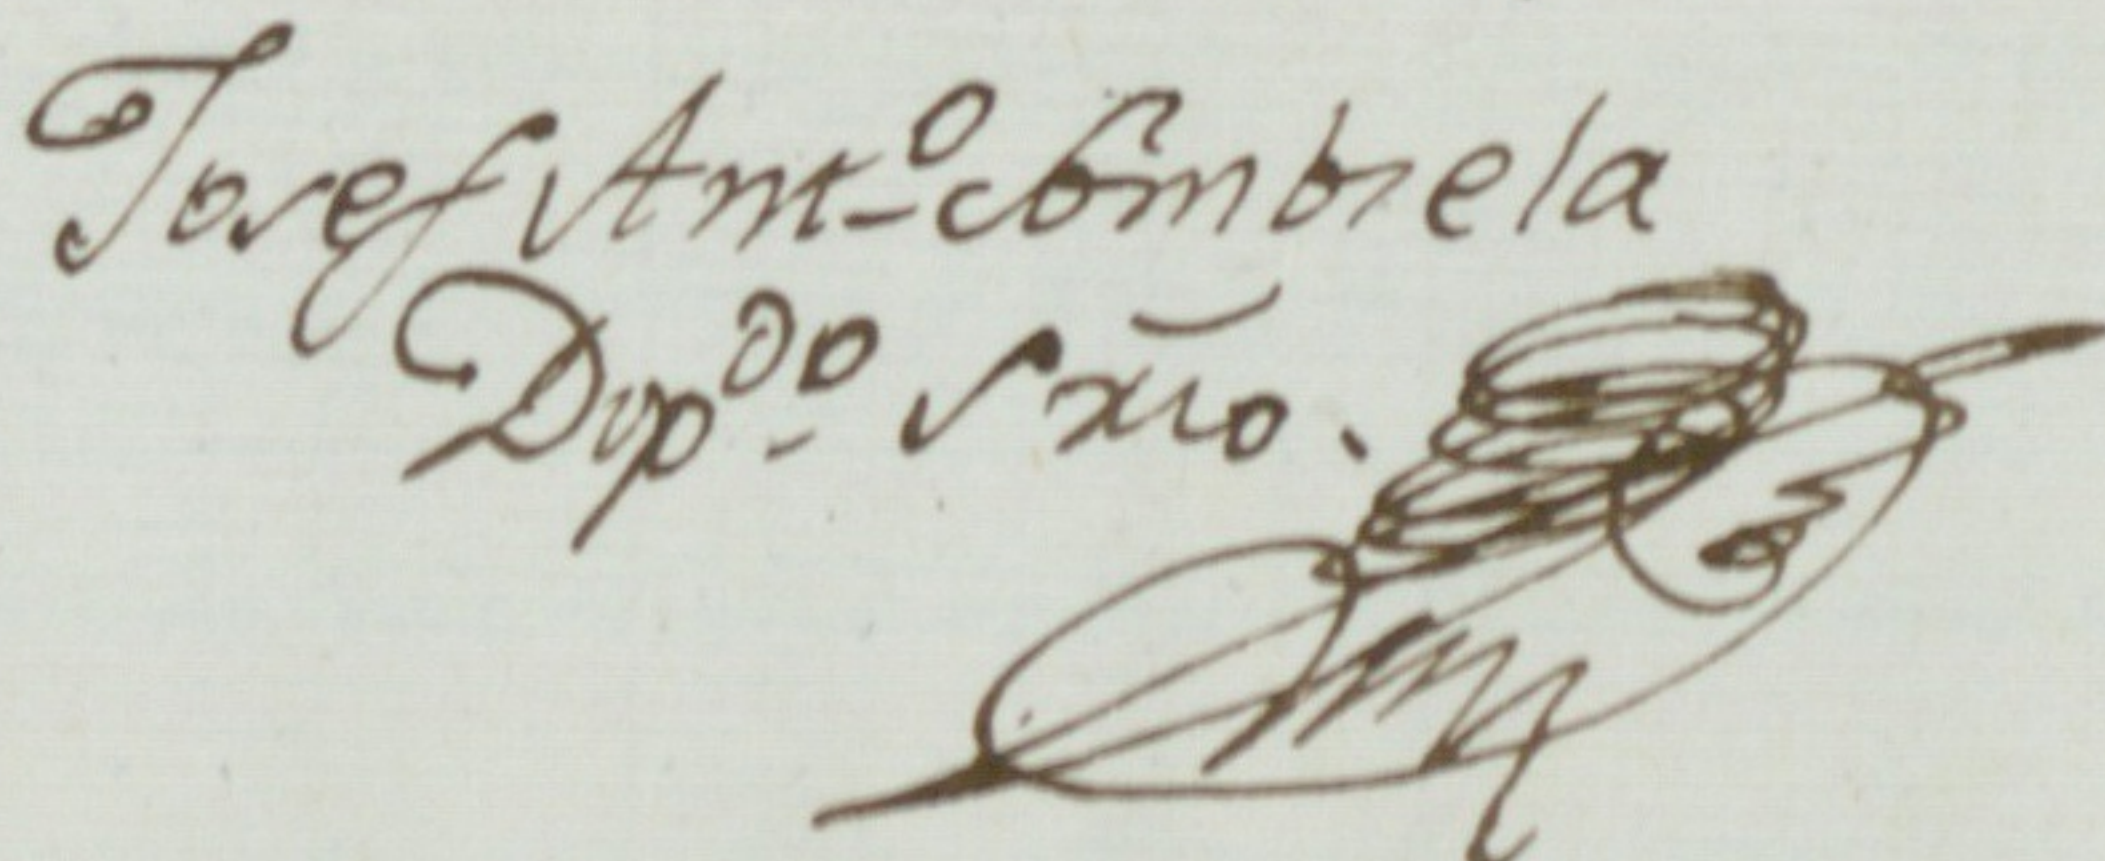 Josef Ant.º Sombiela
Dipᵈᵒ. Srio.